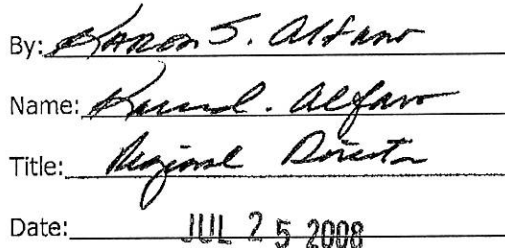 By: Karen J. Alfaro
Name: Karen J. Alfaro
Title: Regional Director
Date: JUL 25 2008